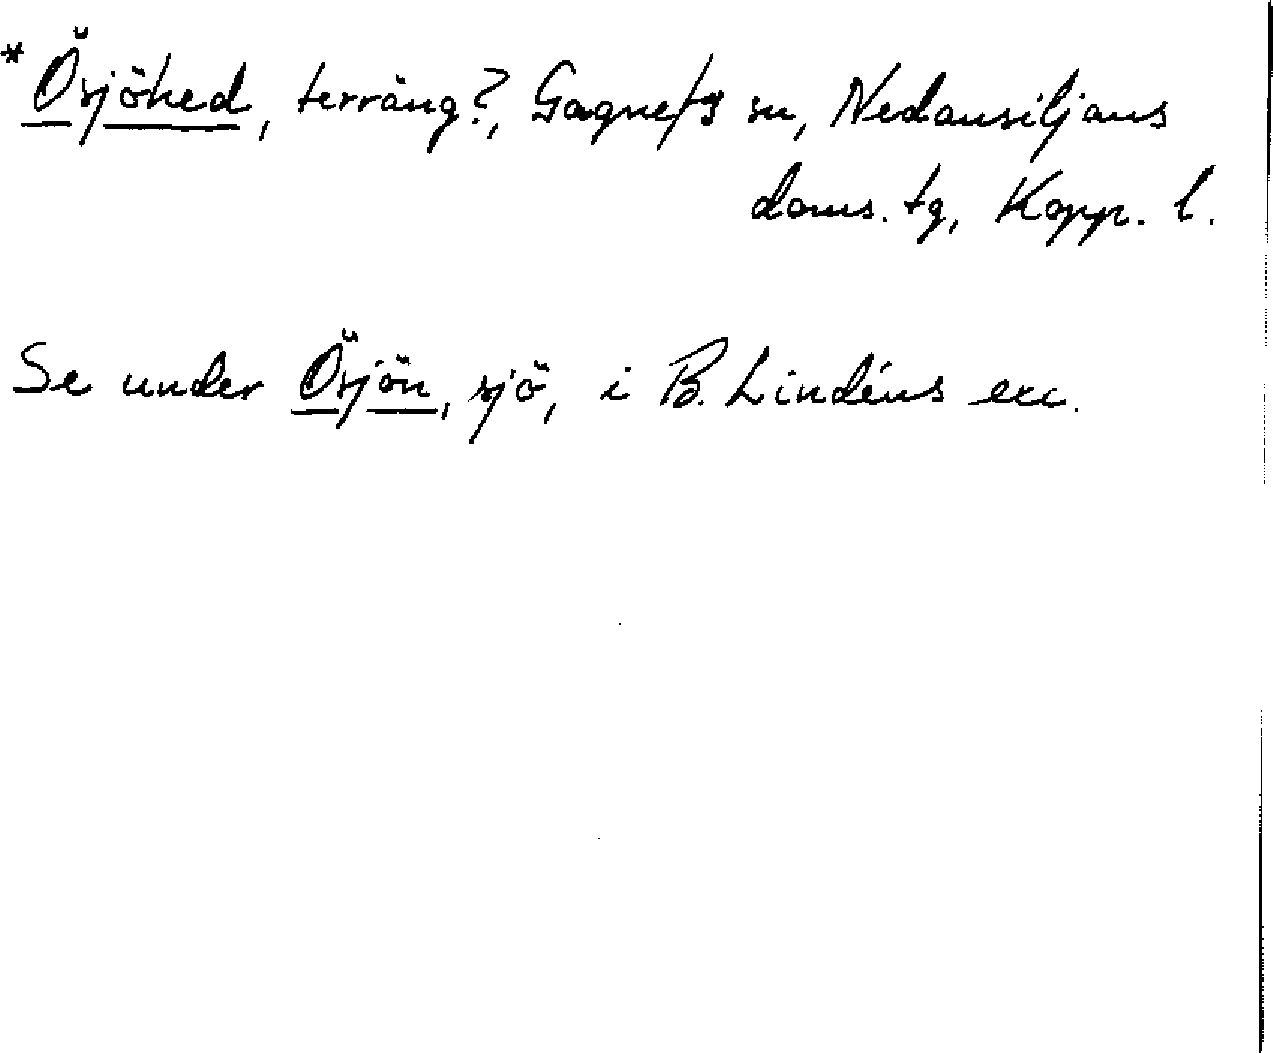 *Ösjöhed, terräng?, Gagnefs sn, Nedansiljans
doms. tg, Kopp. l.
Se under Ösjön, sjö, i B. Lindéns exc.